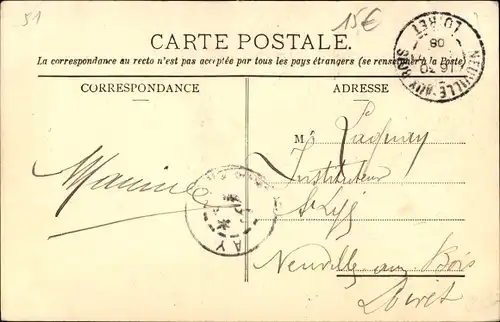 51
15€
CARTE POSTALE.
La correspondance au recto n'est pas acceptée par tous les pays étrangers (se renseigner à la Poste)
CORRESPONDANCE
ADRESSE
NEUVILLE-AUX-BOIS
LOIRET
08
M
Instituteur
Neuville aux Bois
Loiret
Maurice
AY